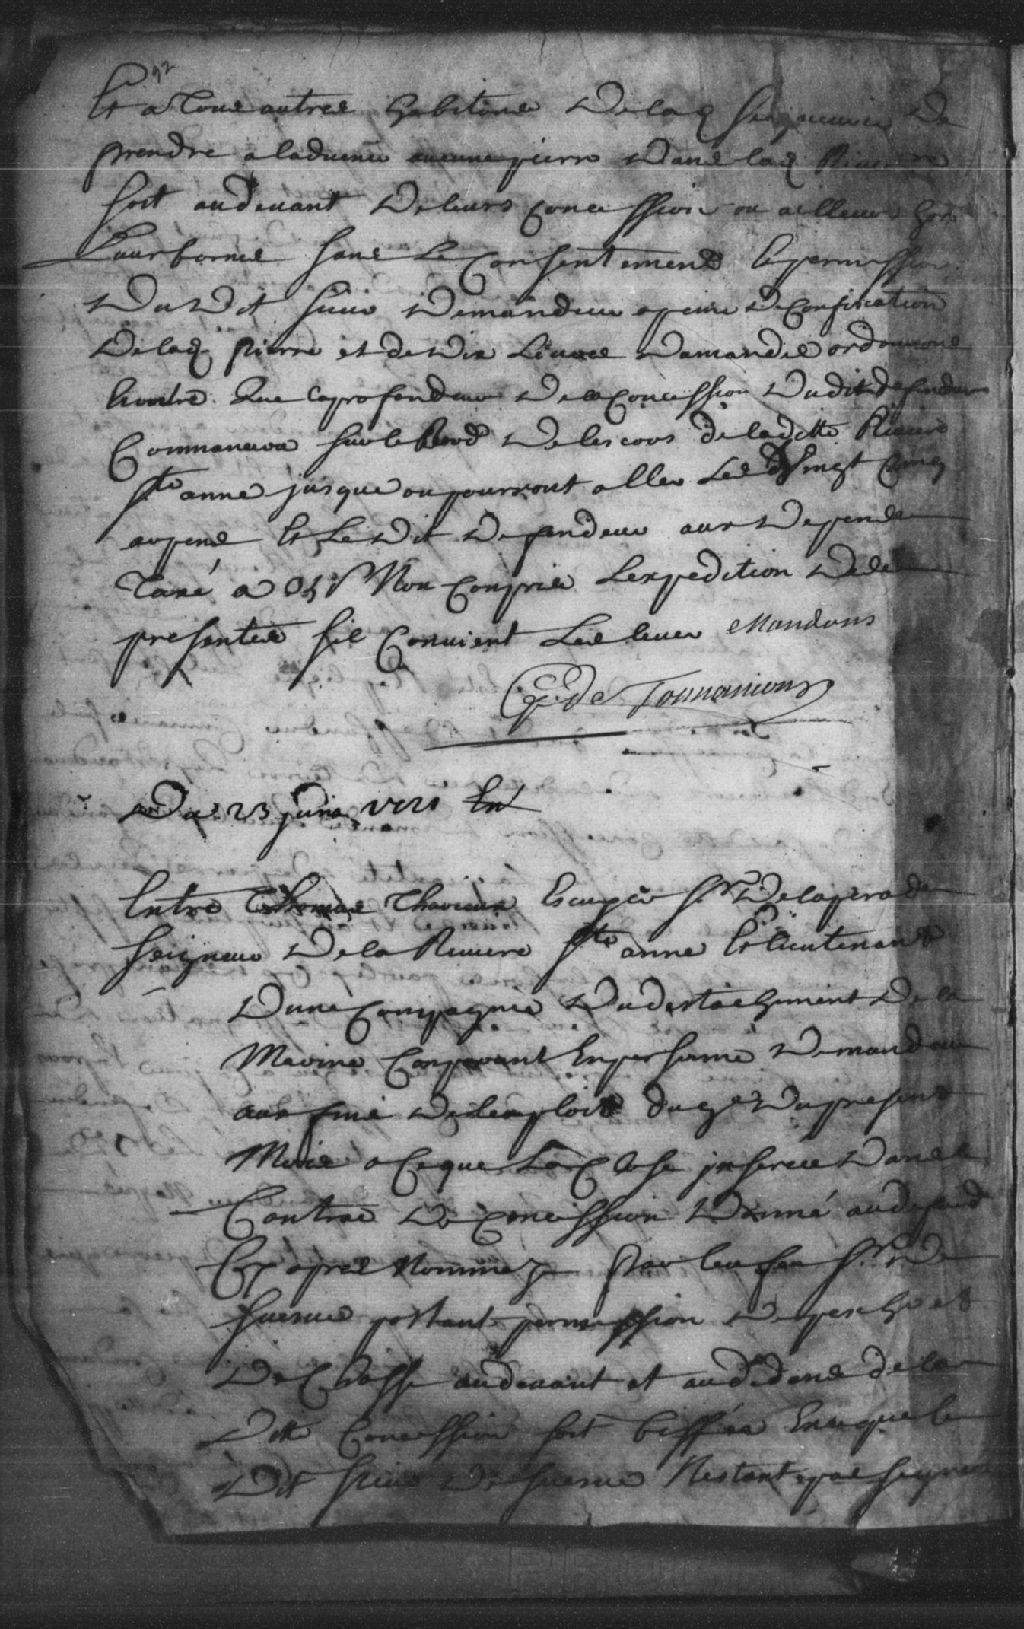 92
Et a Tous autres habitans De lad Seigneurie De
prendre a ladvenir aucune pierre Dans lad Riviere
soit audevant De leurs concession ou ailleurs hors
Leurs bornes sans Le Consentement Et permission
Du Dit Sieur Demandeur a peine De Confiscation
De lad pierre et de Dix Livres Damande ordonnons
Enoutre Que La profondeur De la Concession Dudit defendeur
Commancera sur le Bord De les cors de ladite Riviere
Ste anne jusque ou pourront aller Les Vingt Cinq
arpens Et Le Dit Defendeur aux Depens
Taxé a Non Compris Lexpedition Des
presentes sil Convient Les lever Mandons
De Tonnancour
Du 23 juin 1721
Entre Thomas Tharieux Escuyer Sr De laperade
Seigneur De la Riviere Ste anne Et lieutenant
Dune Compagnie Du destachement De la
Marine Comparant En personne Demandeur
aux fins De lexploit du 9e Du present
Mois a Ce que La Close inserée Dans le
Contrac De Concession Donné au defend
Cy apres Nommez par le feu Sr De
Suesve portant permission De pesche et
De Chasse audevant et au Dedans de la
Ditte Concession soit biffée En ce que le
Dit Sieur De Suesve Nestant pas Seigneur